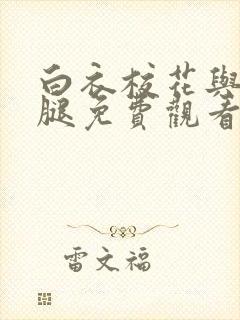 白衣校花與
腿免費觀看
雷文福